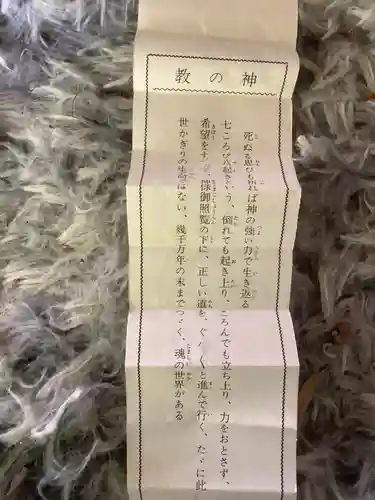 神の教
死ぬる思ひも切れば神の強い力で生き返る
七ころび八起きという、倒れても起き上り、ころんでも立ち上り、力をおとさず、
希望をす 様御照覧の下に、正しい道を、ぐんぐんと進んで行く、たゞに此
世かぎりの生ではない、幾千万年の末までつゞく、魂の世界がある